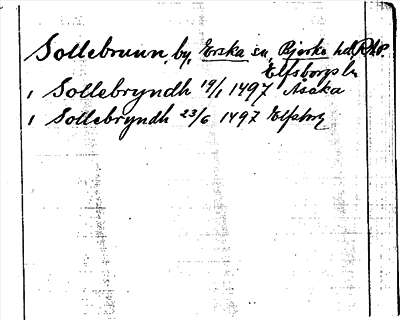 Sollebrunn, by, Erska sn, Bjerke hd, P.
Elfsborgs ln
i Sollebryndh 19/1 1497 Asaka
i Sollebryndh 23/6 1497 Elfsborg